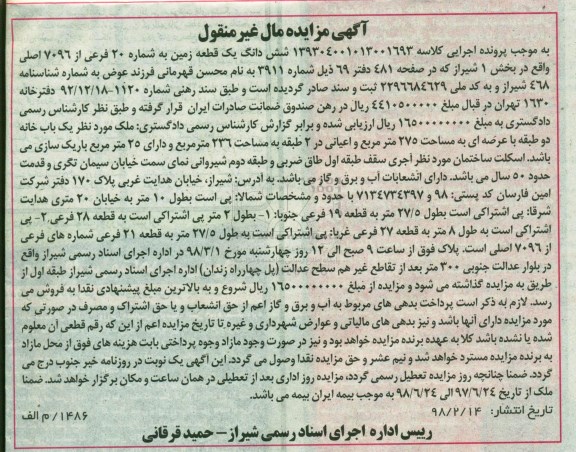 آگهی مزایده مال غیر منقول
به موجب پرونده اجرایی کلاسه ۱۳۹۳۰۴۰۰۱۰۱۳۰۰۱۶۹۳ شش دانگ یک قطعه زمین به شماره ۲۰ فرعی از ۷۰۹۶ اصلی
واقع در بخش ۱ شیراز که در صفحه ۴۸۱ دفتر ۶۹ ذیل شماره ۳۹۱۱ به نام محسن قهرمانی فرزند عوض به شماره شناسنامه
۴۶۸ شیراز و به کد ملی ۲۲۹۶۶۸۴۶۲۹ ثبت و سند صادر گردیده است و طبق سند رهنی شماره ۱۱۲۰–۹۲/۱۲/۱۸ دفترخانه
۱۶۳۰ تهران در قبال مبلغ ۴۴۱۰۵۰۰۰۰۰ ریال در رهن صندوق ضمانت صادرات ایران قرار گرفته و طبق نظر کارشناس رسمی
دادگستری به مبلغ ۱۶۵۰۰۰۰۰۰۰۰ ریال ارزیابی شده و برابر گزارش کارشناس رسمی دادگستری: ملک مورد نظر یک باب خانه
دو طبقه با عرصه ای به مساحت ۲۷۵ متر مربع و اعیانی در ۲ طبقه به مساحت ۲۳۶ مترمربع و دارای ۲۵ متر مربع باربک سازی می
باشد. اسکلت ساختمان مورد نظر آجری سقف طبقه اول طاق ضربی و طبقه دوم شیروانی نمای سمت خیابان سیمان تگری و قدمت
حدود ۵۰ سال می باشد. دارای انشعابات آب و برق و گاز می باشد. به آدرس: شیراز، خیابان هدایت غربی پلاک ۱۷۰ دفتر شرکت
امین فارسان کد پستی: ۹۸ و ۷۱۳۴۷۳۴۳۹۷ با حدود و مشخصات شمالا: پی است بطول ۱۰ متر به خیابان ۲۰ متری هدایت
شرقا: پی اشتراکی است بطول ۲۷/۵ متر به قطعه ۱۹ فرعی جنوبا: ۱- بطول ۲ متر پی اشتراکی است به قطعه ۲۸ فرعی ۲- پی
اشتراکی است به طول ۸ متر به قطعه ۲۷ فرعی غربا: پی اشتراکی است به طول ۲۷/۵ متر به قطعه ۲۱ فرعی شماره های فرعی
از ۷۰۹۶ اصلی است. پلاک فوق از ساعت ۹ صبح الی ۱۲ روز چهارشنبه مورخ ۹۸/۳/۱ در اداره اجرای اسناد رسمی شیراز واقع
در بلوار عدالت جنوبی ۳۰۰ متر بعد از تقاطع غیر هم سطح عدالت (پل چهارراه زندان) اداره اجرای اسناد رسمی شیراز طبقه اول از
طریق به مزایده گذاشته می شود و مزایده از مبلغ ۱۶۵۰۰۰۰۰۰۰۰ ریال شروع و به بالاترین مبلغ پیشنهادی نقدا به فروش می
رسد. لازم به ذکر است پرداخت بدهی های مربوط به آب و برق و گاز اعم از حق انشعاب و یا حق اشتراک و مصرف در صورتی که
مورد مزایده دارای آنها باشد و نیز بدهی های مالیاتی و عوارض شهرداری و غیره تا تاریخ مزایده اعم از این که رقم قطعی آن معلوم
شده یا نشده باشد کلا به عهده برنده مزایده خواهد بود و نیز در صورت وجود مازاد وجوه پرداختی بابت هزینه های فوق از محل مازاد
به برنده مزایده مسترد خواهد شد و نیم عشر و حق مزایده نقدا وصول می گردد. این آگهی یک نوبت در روزنامه خبر جنوب درج می
گردد. ضمنا چنانچه روز مزایده تعطیل رسمی گردد، مزایده روز اداری بعد از تعطیلی در همان ساعت و مکان برگزار خواهد شد. ضمنا
ملک از تاریخ ۹۷/۶/۲۴ الی ۹۸/۶/۲۴ به موجب بیمه ایران بیمه می باشد.
تاریخ انتشار: ۹۸/۲/۱۴
۱۴۸۶/م الف
رییس اداره اجرای اسناد رسمی شیراز – حمید قرقانی